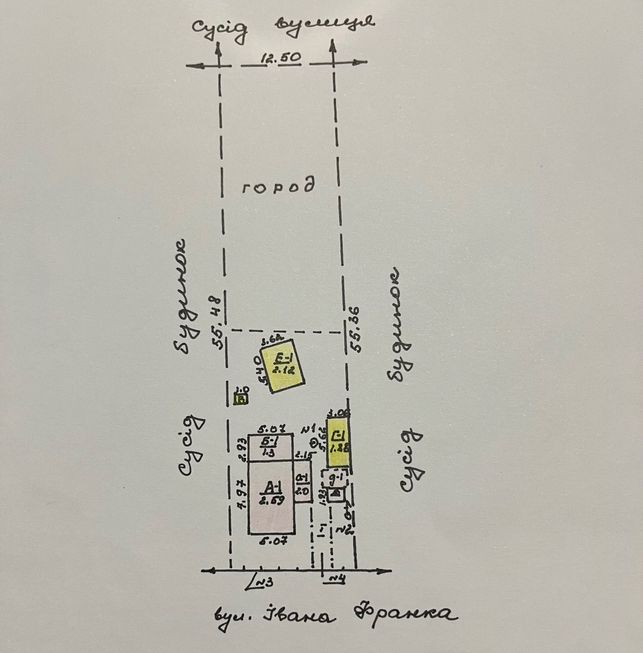 Сусід вулиця
12.50
город
Будинок
55.48
55.36
Будинок
3.62
5.40
Е-1
2.12
3.06
Сусід
5.07
№1
Г-1
1.85
2.93
Б-1
1.3
2.15
Сусід
7.97
А-1
2.59
а-1
2.0
д-1
I
№2
5.07
№3
№4
вул. Івана Франка